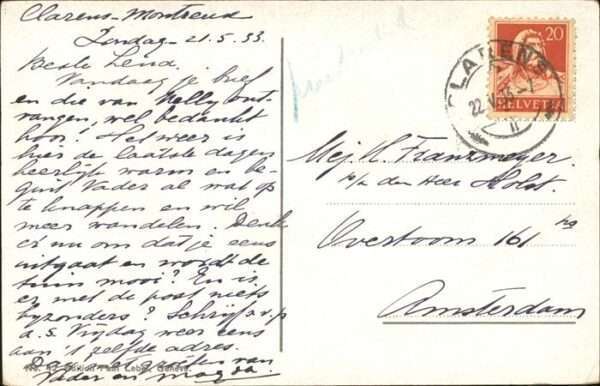 Clarens-Montreux
Zondag - 21.5.33.
Beste Lena.
Vandaag je brief
en die van Nelly ont-
vangen, wel bedankt
hoor! Het weer is
hier de laatste dagen
heerlijk warm en be-
gint Vader al wat op
te knappen en wil
meer wandelen. Denk
er nu om dat je eens
uitgaat en wordt de
tuin mooi? En is
er met de post niets
byzonders? Schrijf s.v.p
a.s. Vrijdag weer eens
aan 't zelfde adres.
Dag, met groeten van
Vader en Magda.
Edition Paul Genève.
20
HELVETIA
CLARENS
22.V.33.-7
Mej. H. Franzmeyer
p/a den Heer Holst.
Overtoom 161 hs
Amsterdam